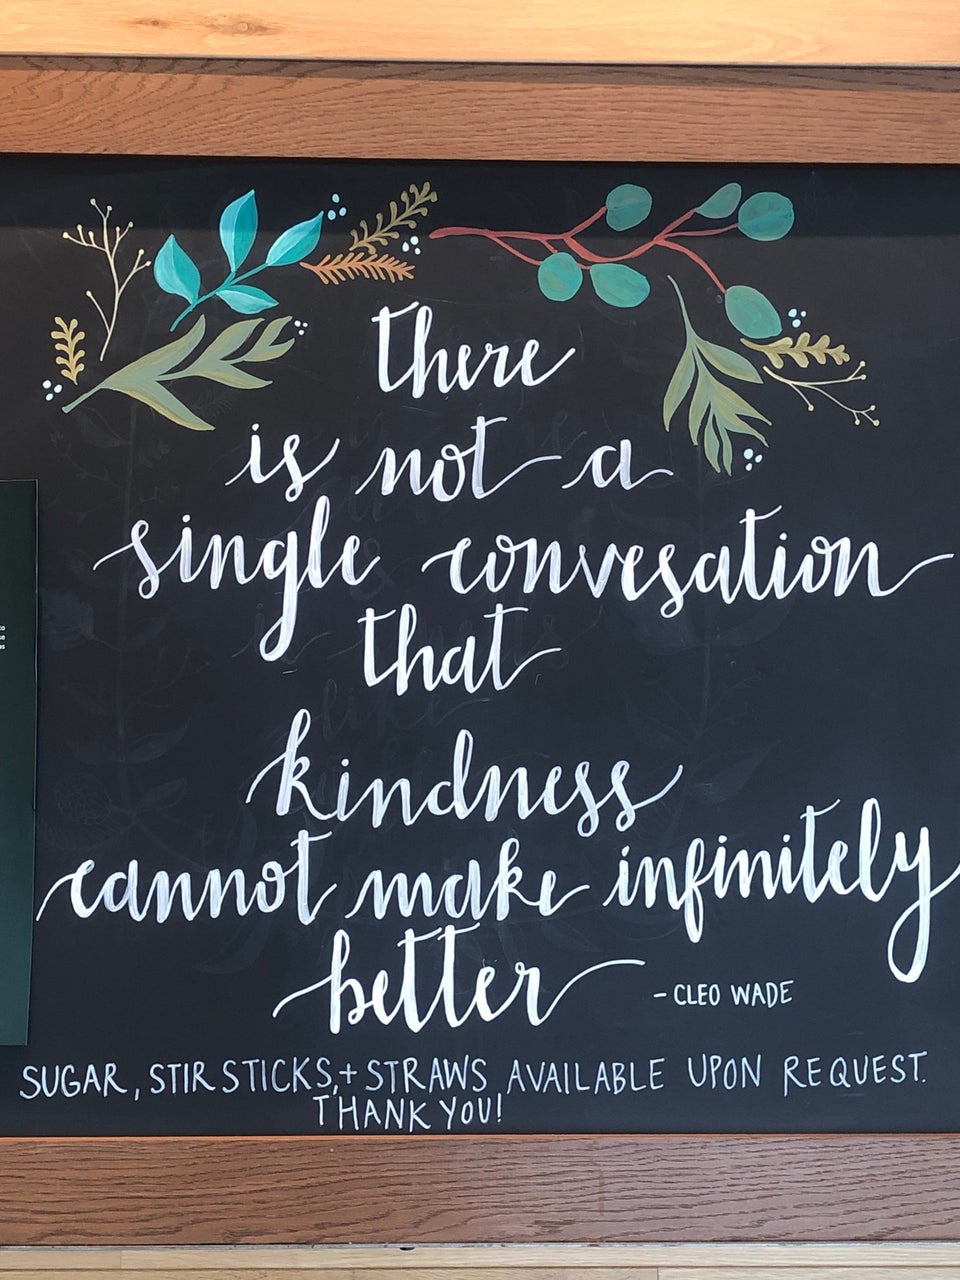 there
is not a
single convesation
that
kindness
cannot make infinitely
better
- CLEO WADE
SUGAR, STIR STICKS, + STRAWS AVAILABLE UPON REQUEST.
THANK YOU!